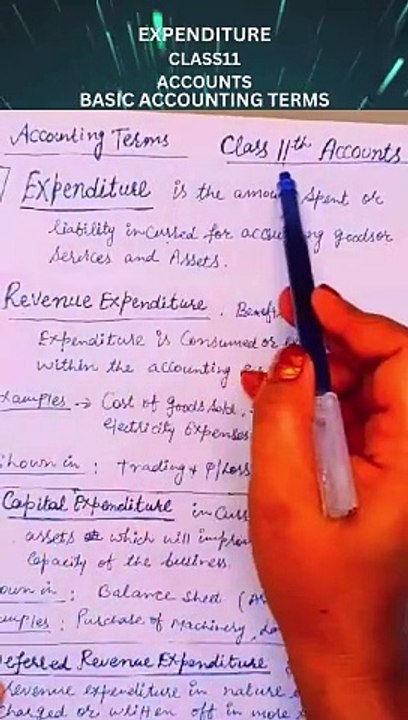 EXPENDITURE
CLASS11
ACCOUNTS
BASIC ACCOUNTING TERMS
Accounting Terms Class 11th Accounts
Expenditure is the amou spent or
liability incurred for accou ng goods or
Services and Assets.
Revenue Expenditure . Benefi
Expenditure is Consumed or
within the accounting
xamples → Cost of goods sold,
electricity expenses
Shown in : Trading & P/Loss
Capital Expenditure incurr
assets which will improv
Capacity of the business.
own in : Balance Sheet (As
mples : Purchase of Machinery,
eferred Revenue Expenditure
revenue expenditure in nature
charged or written off in more